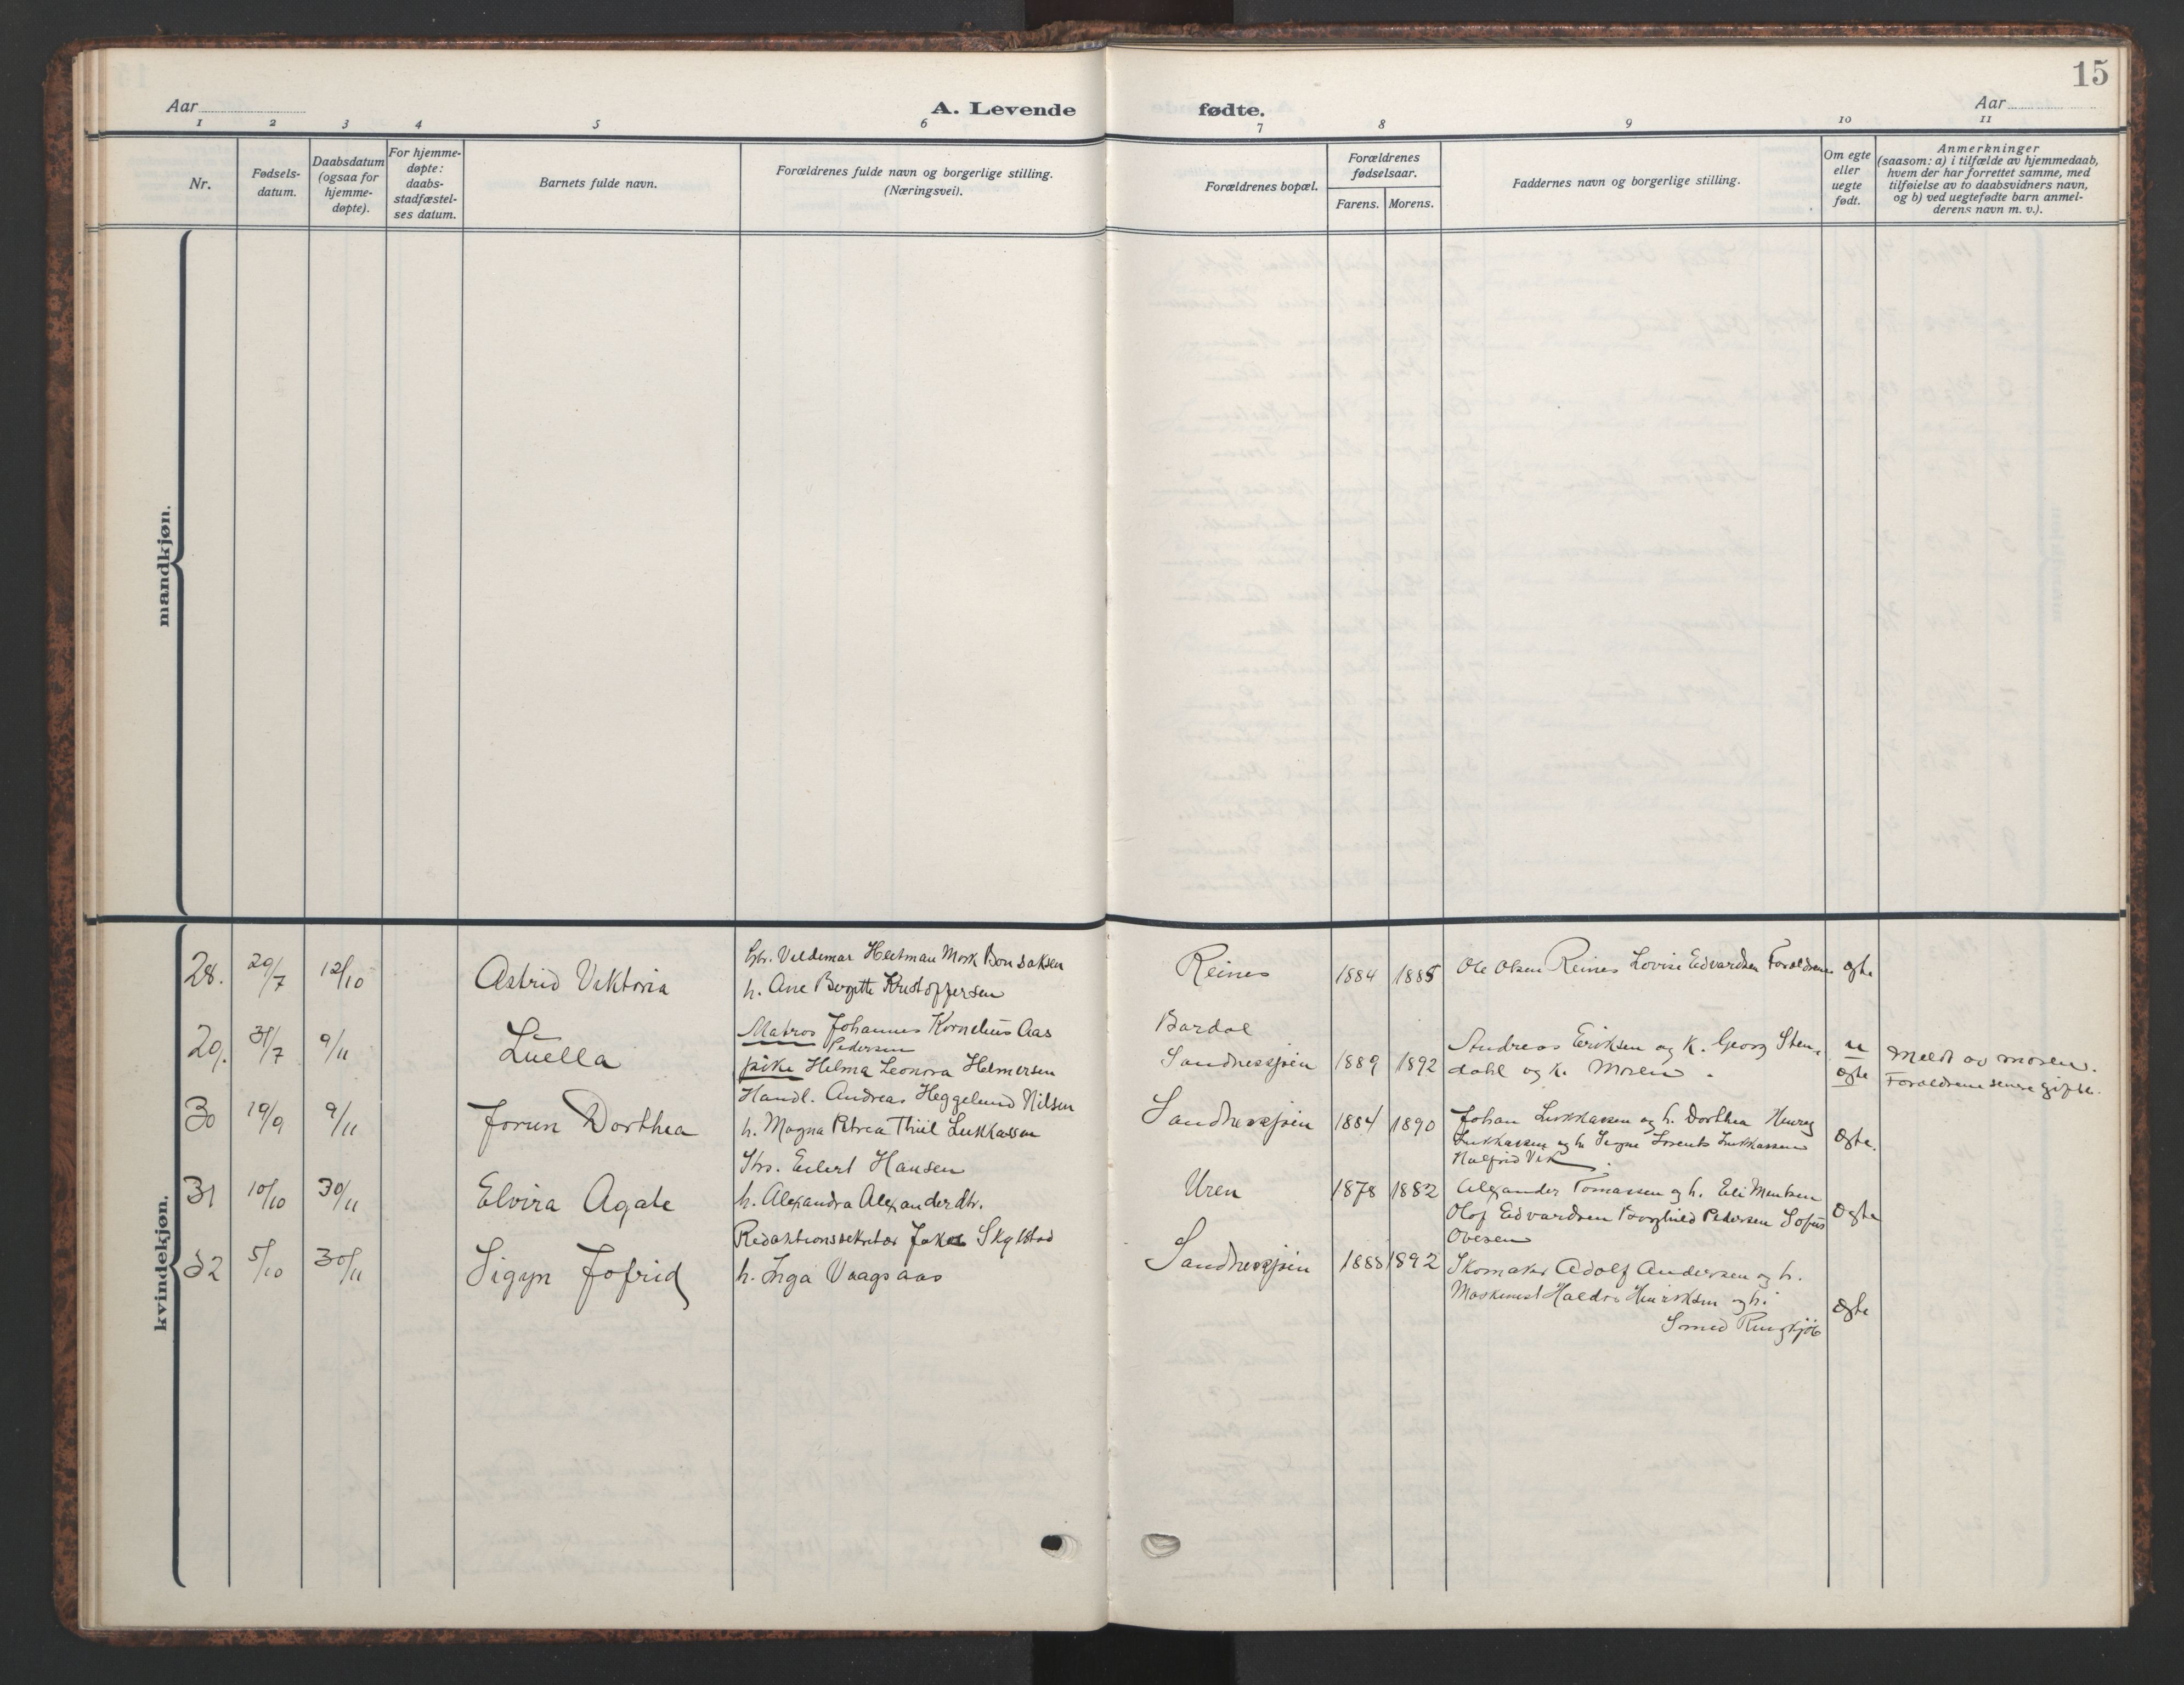 15
Aar
A. Levende fødte.
Aar
1 2 3 4 5 6 7 8 9 10 11
Nr.
Fødsels-
datum.
Daabsdatum
(ogsaa for
hjemme-
døpte).
For hjemme-
døpte:
daabs-
stadfæstel-
ses datum.
Barnets fulde navn.
Forældrenes fulde navn og borgerlige stilling.
(Næringsvei).
Forældrenes bopæl.
Forældrenes
fødselsaar.
Farens. Morens.
Faddernes navn og borgerlige stilling.
Om egte
eller
uegte
født.
Anmerkninger
(saasom: a) i tilfælde av hjemmedaab,
hvem der har forrettet samme, med
tilføielse av to daabsvidners navn,
og b) ved uegtefødte barn anmel-
derens navn m. v.).
mandkjøn.
kvindekjøn.
28. 29/7 12/10 Astrid Viktoria
Valdemar Heitman Mork Bonsaksen
h. Ane Bergitte Kristoffersen
Reines 1884 1885
Ole Olsen Reines Lovise Edvardsen Forældrene
egte
29. 31/7 9/11 Luella
Matros Johannes Kornelius Aas
Pedersen
pike Helma Leonora Helmersen
Bardal
Sandnessjøen 1889 1892
Andreas Eriksen og K. Georg Sten-
dahl og K. Moren.
u
egte
Meldt av moren.
Forældrene senere gifte.
30 19/9 9/11 Jorun Dorthea
Handl. Andreas Heggelund Nilsen
h. Magna Petrea Thiil Lukkassen
Sandnessjøen 1884 1890
Johan Lukkassen og h. Dorthea Henrey
Lukkassen og h. Signe Lorents Lukkassen
Halfrid Vik
egte.
31 10/10 30/11 Elvira Agate
Eilert Hansen
h. Alexandra Alexanderdtr.
Uren 1878 1882
Alexander Tomassen og h. Eli Mentsen
Olof Edvardsen Borghild Pedersen Sofus
Ovesen
egte
32 5/10 30/11 Sigyn Jofrid
Redaktionssekretær Jakob Skylstad
h. Inga Vaagsaas
Sandnessjøen 1888 1892
Skomaker Adolf Andersen og h.
Maskinist Haldor Henriksen og h.
Ringkjøb
egte